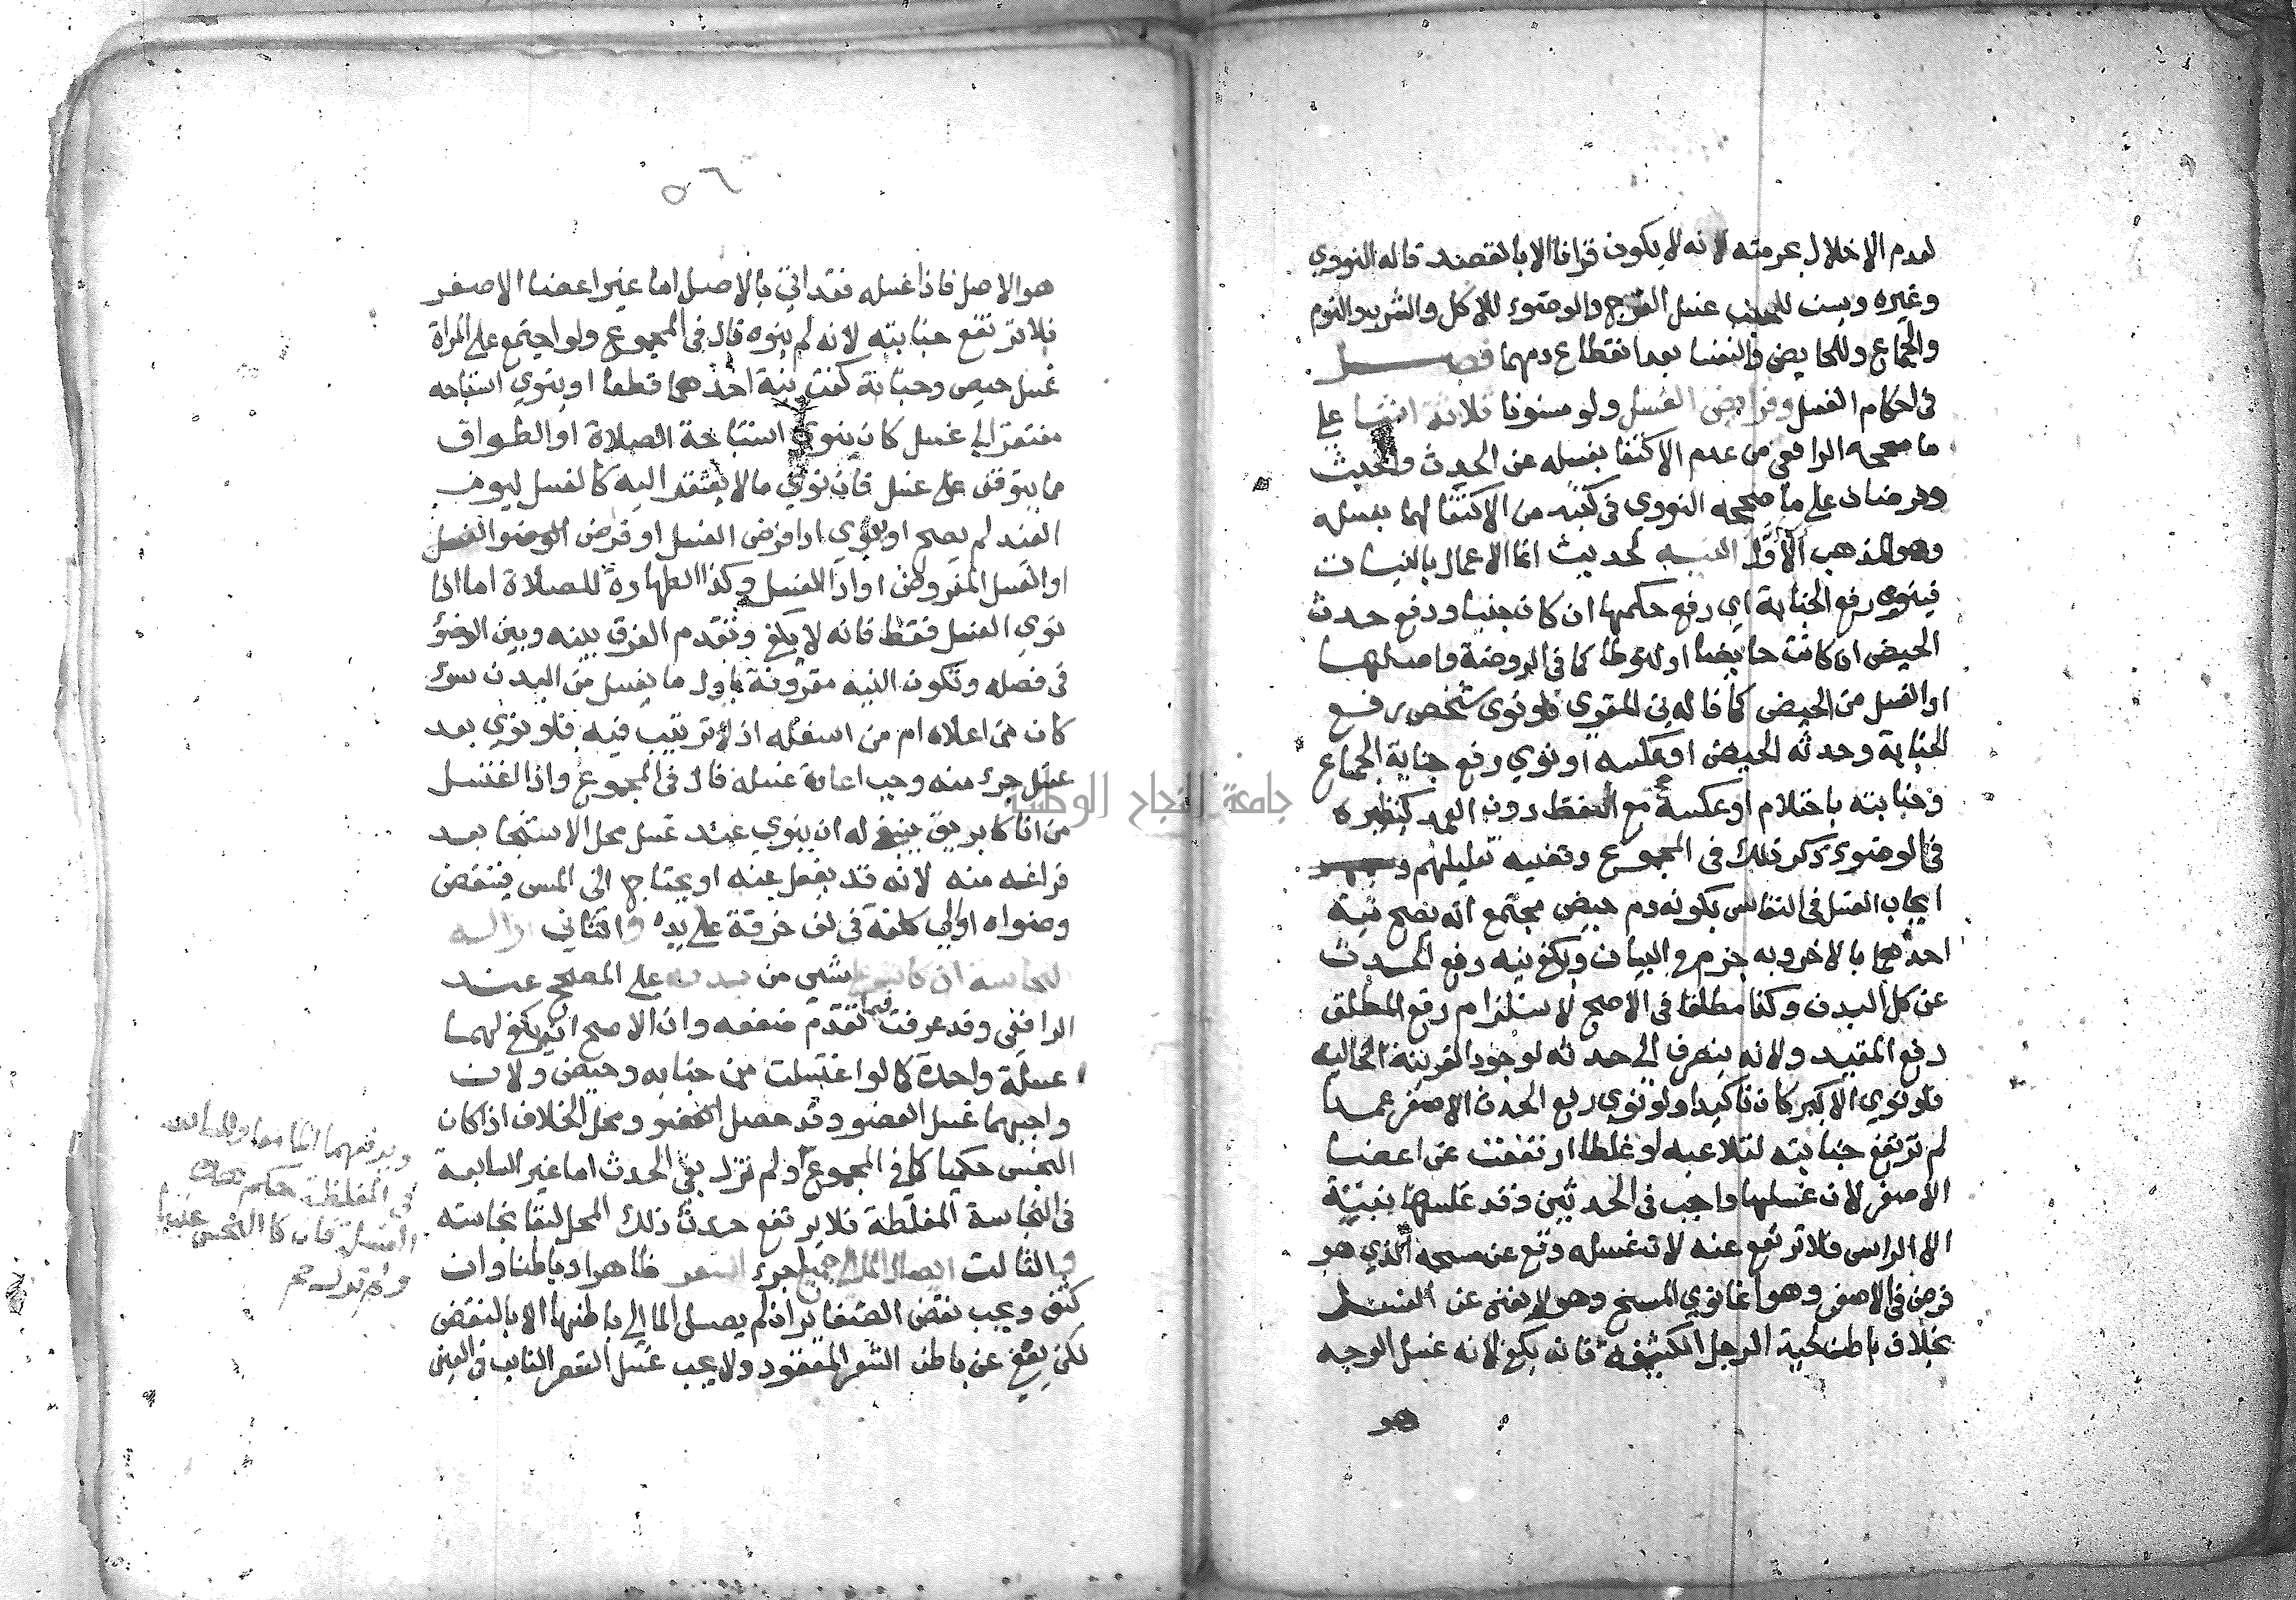 لعدم الاخلال بحرمته لانه لا يكون قرانا الا بالقصد قاله النووي
وغيره ويسن للجنب غسل الفرج والوضوء للاكل والشرب والنوم
والجماع وللحايض والنفسا بعد انقطاع دمهما فصل
في احكام الغسل وفرايض الغسل ولو مسنونا ثلاثة اشيا على
ما صححه الرافعي من عدم الاكتفا بغسله عن الحدث والخبث
وفرضان على ما صححه النووي في كتبه من الاكتفا لهما بغسله
وهو المذهب الاول النيه لحديث انما الاعمال بالنيات
فينوي رفع الجنابة اي رفع حكمها ان كان جنبا ورفع حدث
الحيض ان كانت حايضا او لتوطا كما في الروضة واصلها
او الغسل من الحيض كما قاله بن المقري فلو نوى شخص رفع
الجنابة وحدثه الحيض او عكسه او نوي رفع جنابة الجماع
وجنابته باحتلام او عكسه صح مع الغلط دون العمد كنظيره
في الوضوء ذكر ذلك في المجموع وقضيه تعليلهم
ايجاب الغسل في النفاس بكونه دم حيض مجتمع انه يصح نية
احدهما بالاخر وبه جزم في البيان ويكفي نيه رفع الحدث
عن كل البدن وكذا مطلقا في الاصح لاستلزام رفع المطلق
رفع المقيد ولانه ينصرف الى حدثه لوجود القرينة الحاليه
فلو نوي الاكبر كان تاكيدا ولو نوي رفع الحدث الاصغر عمدا
لم ترتفع جنابته لتلاعبه او غلطا ارتفعت عن اعضا
الاصغر لان غسلها واجب في الحدثين وقد غسلها بنيته
الا الراس فلا ترتفع عنه لان غسله وقع عن مسحه الذي هو
فرض في الاصغر وهو انما نوي المسح وهو لا يغني عن الغسل
بخلاف باطن لحية الرجل الكثيفه فانه يكفي لانه غسل الوجه
هو
٥٦
هو الاصل فاذا غسله فقد اتي بالاصل اما غير اعضا الاصغر
فلا ترتفع جنابته لانه لم ينوه قال في المجموع ولو اجتمع على المراة
غسل حيض وجنابة كفت نية احدهما قطعا او ينوي استباحه
مفتقر الى غسل كان ينوي استباحة الصلاة او الطواف
مما يتوقف على غسل فان نوي ما لا يفتقر اليه كالغسل ليوم
العيد لم يصح او ينوي ادا فرض الغسل او فرض الغسل
او الغسل المفروض او ادا الغسل وكذا الطهارة للصلاة اما اذا
نوي الغسل فقط فانه لا يكفي وتقدم الفرق بينه وبين الوضوء
في فصله وتكون النيه مقرونة باول ما يغسل من البدن سوا
كان من اعلاه ام من اسفله اذ لا ترتيب فيه فلو نوي بعد
غسل جزء منه وجب اعادة غسله قال في المجموع واذا اغتسل
من انا كابريق ينبغي له ان ينوي عند غسل محل الاستنجا بعد
فراغه منه لانه قد يغفل عنه او يحتاج الى المس فينتقض
وضوءه او الي كلفة في لف خرقة على يده والثاني ازالة
النجاسة ان كانت على شي من بدنه على المصحح عند
الرافعي وقد عرفت فيما تقدم ضعفه وان الاصح انه يكفي لهما
غسلة واحدة كما لو اغتسلت من جنابه وحيض ولان
واجبهما غسل العضو وقد حصل ومحل الخلاف اذا كان
النجس حكميا كما في المجموع اذ لم تزل بقي الحدث اما غير السابعة
في النجاسة المغلظة فلا يرتفع حدث ذلك المحل لبقا نجاسته
والثالث ايصال الما الى جميع اجزاء الشعر ظاهرا وباطنا وان
كثف ويجب نقض الضفاير ان لم يصل الما الى باطنها الا بالنقض
لكن يعفي عن باطن الشعر المعقود ولا يجب غسل الشعر النابت في العين
ويرفعهما الما معا
في المغلظة حكم
الغسلة فان كان النجس عينيا
ولم تزل
جامعة النجاح الوطنية